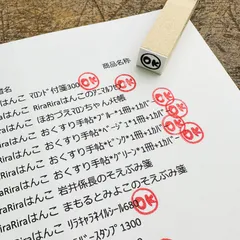 者名 商品名称
はんこ マロンド 付箋300 OK
はんこ RiraRiraはんこのアニマルフセ OK
raはんこ ほおづえマロンちゃんメモ帳 OK
raはんこ おくすり手帖*ブルー*1冊+1カバー OK
Riraはんこ おくすり手帖*ベージュ*1冊+1カバー OK
Riraはんこ おくすり手帖*ピンク*1冊+1カバー OK
Riraはんこ おくすり手帖*グリーン*1冊+1カバー OK
iRiraはんこ 岩井係長のそえぶみ箋 OK
iRiraはんこ まもるとみよこのそえぶみ箋
raRiraはんこ リラキャラネイルシール680 OK
Riraはんこ スタンプ 1300
OK